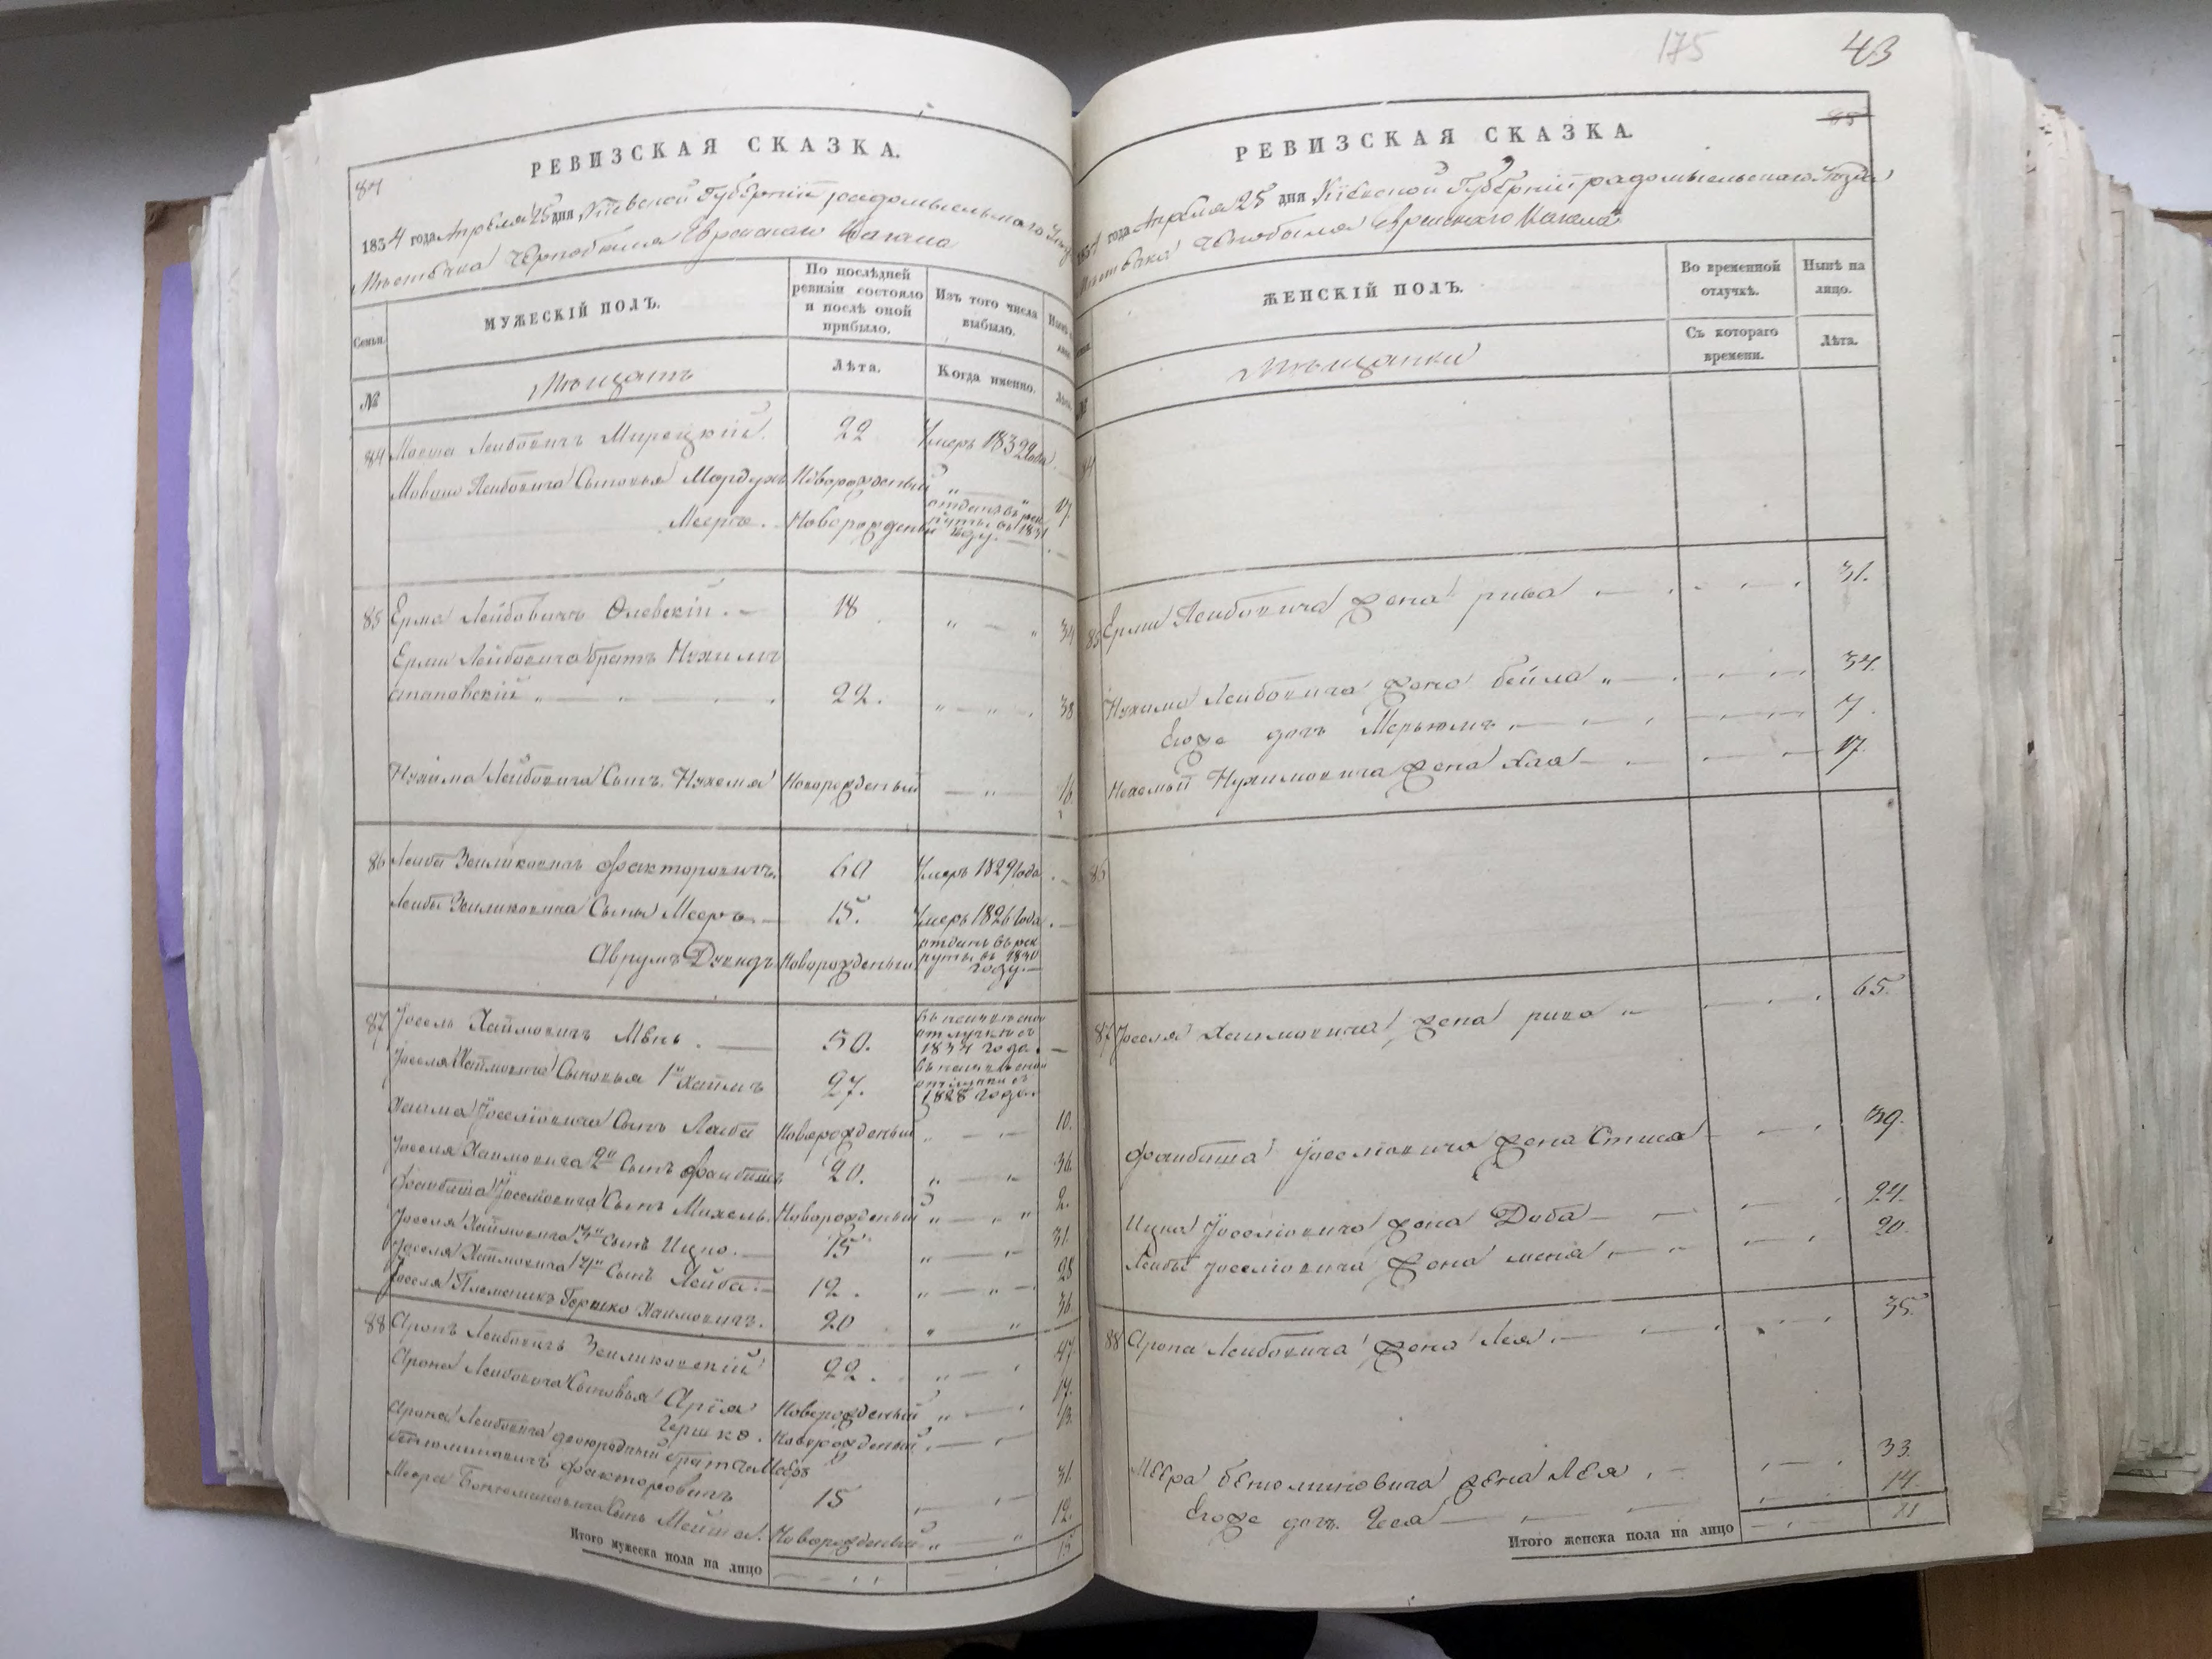 84
РЕВИЗСКАЯ СКАЗКА.
1834 года Апреля 25 дня Кіевской Губерніи радомысльскаго
Мѣстечка Чернобыля Еврейскаго Кагала
Семьи.
МУЖЕСКІЙ ПОЛЪ.
По послѣдней ревизіи состояло и послѣ оной прибыло.
Изъ того числа выбыло.
№
Мѣщанъ
Лѣта.
Когда именно.
84 Лейбовичъ Мирецкій 22 Умеръ 1832 года
Лейбовича Сыновья Мордухъ Новорожденый 17.
Мееръ. Новорожденый отданъ въ рекруты въ 1831 году.
85 Ерма Лейбовичъ Олевскій. 18 34
Ерми Лейбовича братъ Нухимъ
степановскій 22. 38
Нухима Лейбовича Сынъ Нухемя Новорожденый 16.
86 Лейба Зеиликовичъ Факторовичъ. 60 Умеръ 1829 года
Лейбы Зеиликовича Сыны Мееръ 15. Умеръ 1826 года
Аврумъ Дувидъ Новорожденый отданъ въ рекруты въ 1830 году.
87 Іосель Хаймовичъ 50. 1834 года.
Іоселя Хаймовича Сыновья 1й Хаимъ 27. 1828 года.
Хаима Іоселіовича Сынъ Лейба Новорожденый 10.
Іоселя Хаимовича 2й Сынъ Фаибишъ 20. 36.
Фаибиша Іоселіовича Сынъ Михель. Новорожденый 2.
Іоселя Хаймовича 3й Сынъ Ицко. 15 31.
Іоселя Хаймовича 4й Сынъ Лейба. 12. 28
Іоселя Племеникъ Гершко Хаимовичъ. 20 36.
88 Аронъ Лейбовичъ Зеиликовскій 22.
Арона Лейбовича Сыновья Арія Новорожденый 17.
Гершко. Новорожденый. 13.
Арона Лейбовича двоюродный братъ Мееръ
беніоминовичъ Факторовичъ 15 31.
Меера Беніоминовича Сынъ Мейша. Новорожденый 12.
Итого мужеска пола на лицо
175
43
85
РЕВИЗСКАЯ СКАЗКА.
1834 года Апреля 25 дня Кіевской Губерніи радомысльскаго Уезда
Мѣстечка Чернобыля Еврейскаго Кагала
ЖЕНСКІЙ ПОЛЪ.
Во временной отлучкѣ.
Нынѣ на лицо.
№
Мѣщанки
Съ котораго времени.
Лѣта.
84
85 Ерми Лейбовича жена рива 31.
Нухима Лейбовича жена бейла 34.
Егоже дочь Мерьюмъ 7.
Нухимовича жена Хая 17.
86
87 Іоселя Хаимовича жена рива 65.
Фаибиша Іоселіовича жена Стиса 39.
Ицка Іоселіовича жена Доба 24.
Лейбы Іоселіовича жена 20.
88 Арона Лейбовича жена Лея 35.
Меера беніоминовича жена Лея 33.
Егоже дочь 14.
Итого женска пола на лицо 11